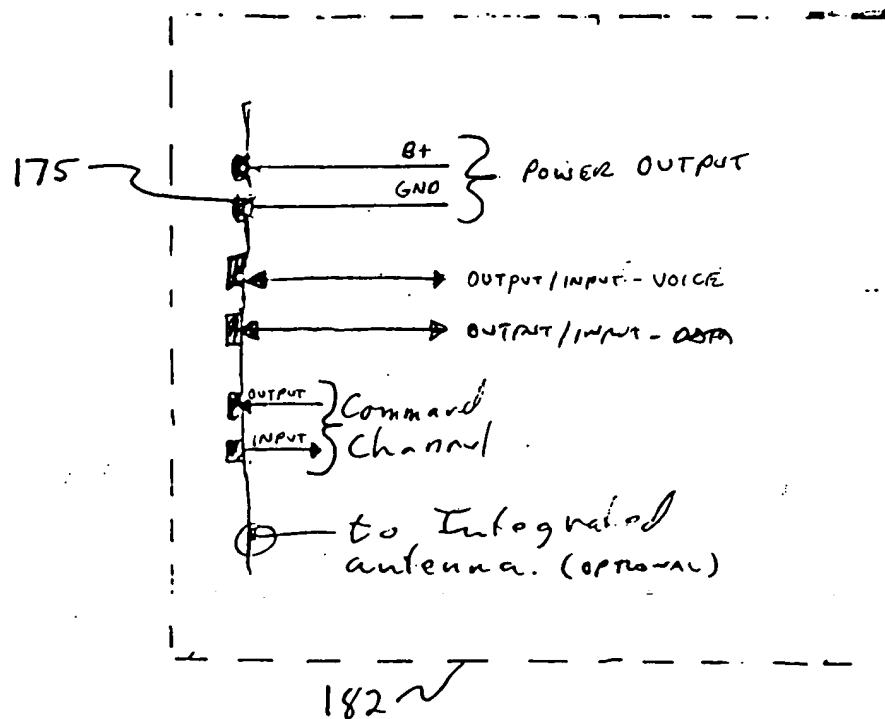 175
B+
GND
POWER OUTPUT
OUTPUT/INPUT - VOICE
OUTPUT/INPUT - DATA
OUTPUT
INPUT
Command
Channel
to Integrated
antenna. (OPTIONAL)
182